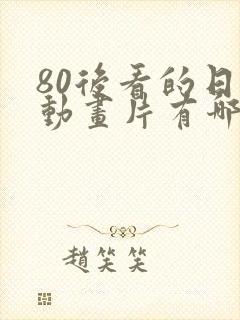 80後看的日
動畫片有哪
趙笑笑